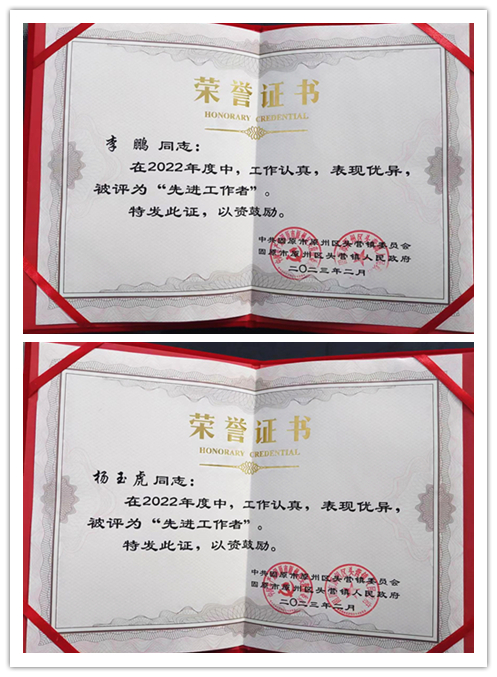 荣誉证书
HONORARY CREDENTIAL
李鹏同志：
在2022年度中，工作认真，表现优异，
被评为“先进工作者”。
特发此证，以资鼓励。
中共固原市原州区头营镇委员会
固原市原州区头营镇人民政府
二〇二三年二月
荣誉证书
HONORARY CREDENTIAL
杨玉虎同志：
在2022年度中，工作认真，表现优异，
被评为“先进工作者”。
特发此证，以资鼓励。
中共固原市原州区头营镇委员会
固原市原州区头营镇人民政府
二〇二三年二月